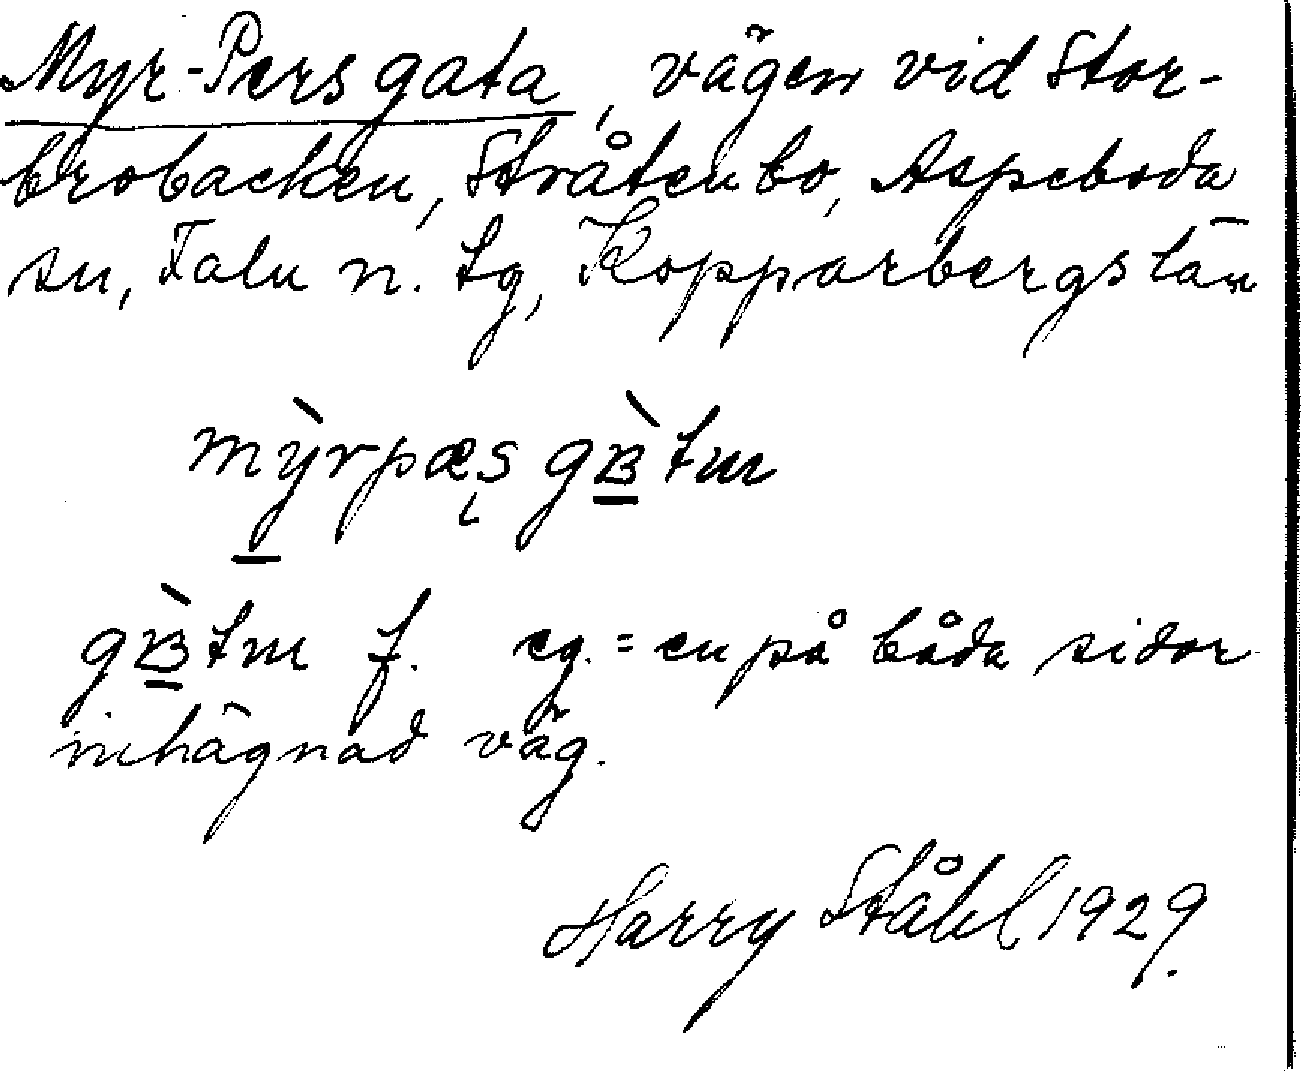 Myr-Pers gata, vägen vid Stor-
brobacken, Stråtenbo, Aspeboda
sn, Falu n. tg, Kopparbergs län
gʙ̀tɯ f. eg. = en på båda sidor
inhägnad väg.
Harry Ståhl 1929.